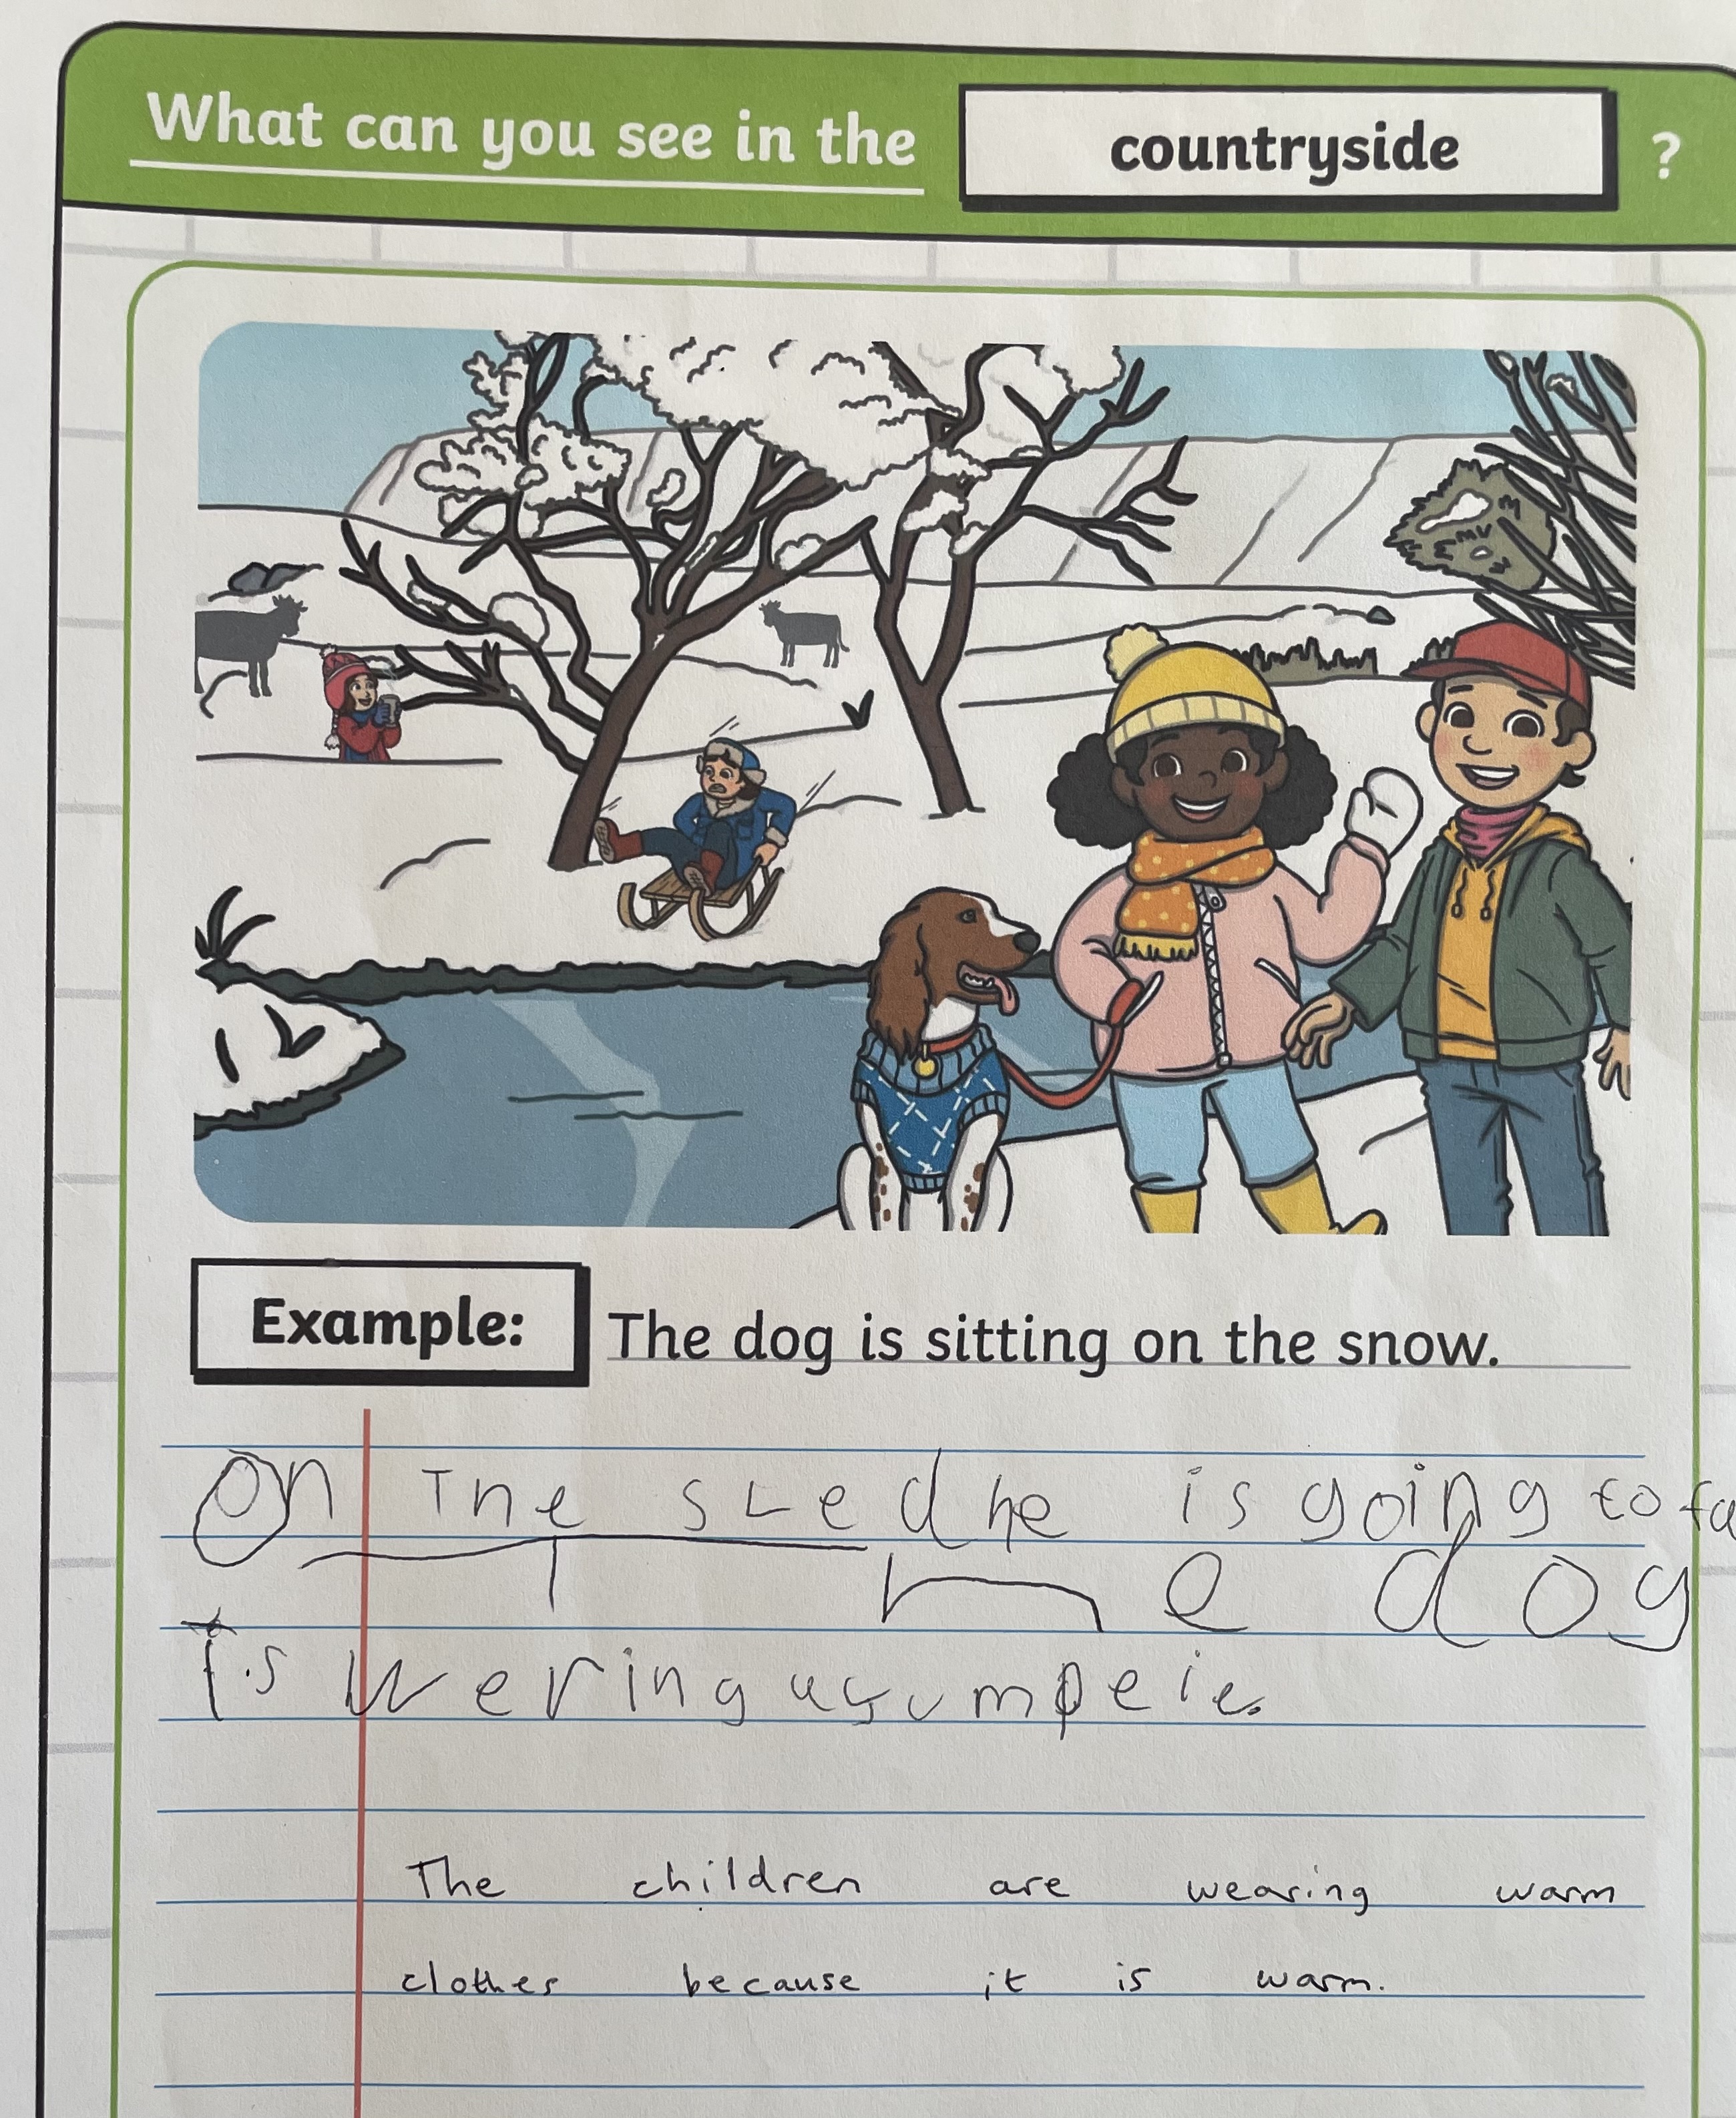 What can you see in the countryside ?
Example: The dog is sitting on the snow.
On The sLed he is going to fa
The dog
is wering a
The children are wearing warm
clothes because it is warm.